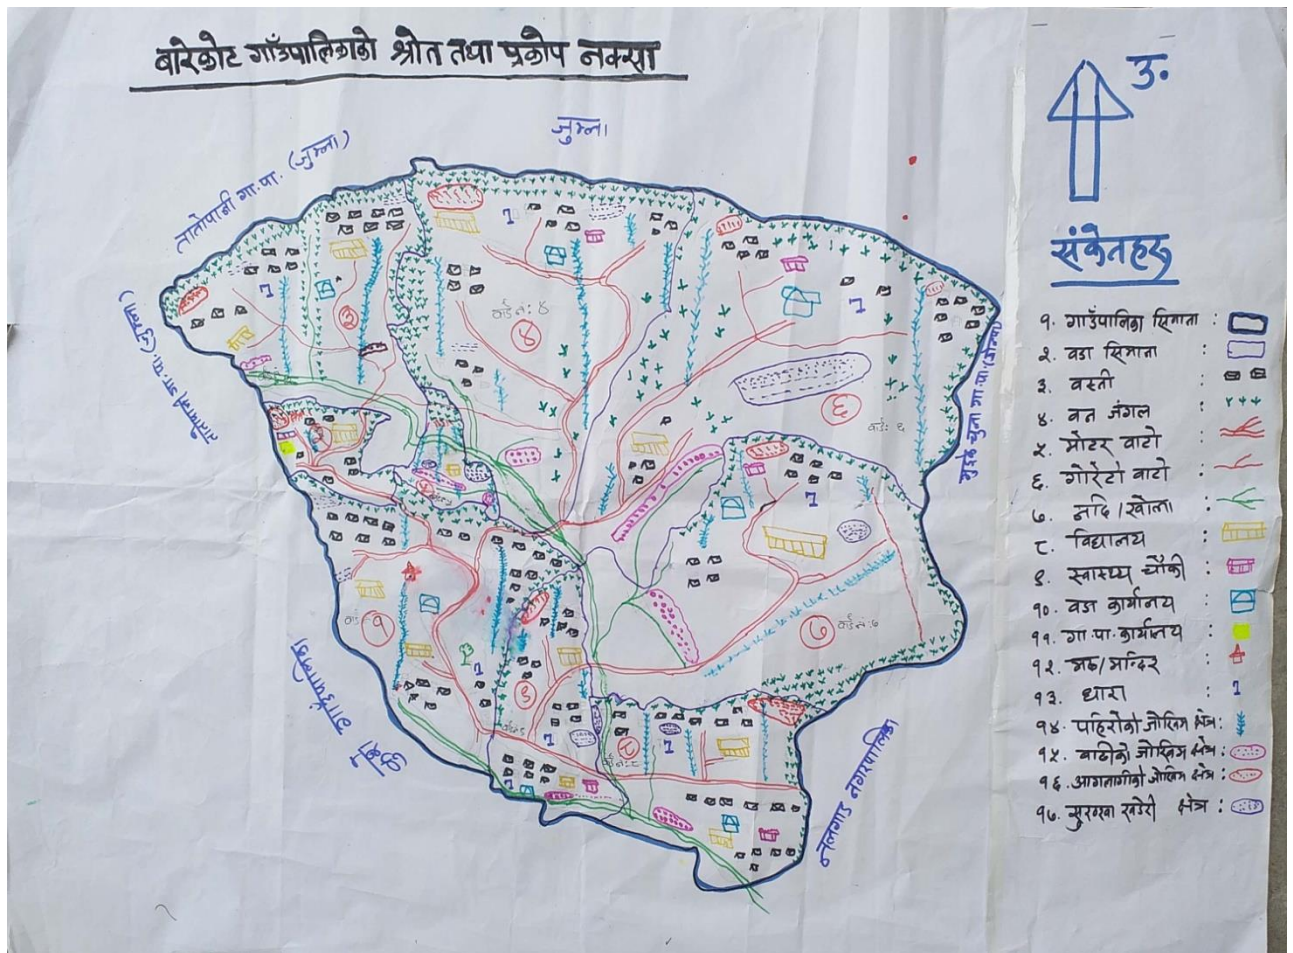 बारेकोट गाउँपालिकाको श्रोत तथा प्रकोप नक्सा
उ.
जुम्ला
तातोपानी गा.पा. (जुम्ला)
गा.पा. (जुम्ला)
गुठिचौर गा.पा.
वार्ड नं: ४
३
४
६
वडा: ६
५
७
वार्ड नं: ७
वार्ड नं: १
१
९
८
नलगाड नगरपालिका
संकेतहरु
१. गाउँपालिका सिमाना :
२. वडा सिमाना :
३. वस्ती :
४. वन जंगल :
५. मोटर वाटो :
६. गोरेटो वाटो :
७. नदि/खोला :
८. विद्यालय :
९. स्वास्थ्य चौकी :
१०. वडा कार्यालय :
११. गा.पा. कार्यालय :
१२. मठ/मन्दिर :
१३. धारा :
१४. पहिरोको जोखिम क्षेत्र :
१५. बाढीको जोखिम क्षेत्र :
१६. आगलागीको जोखिम क्षेत्र :
१७. सुख्खा खडेरी क्षेत्र :